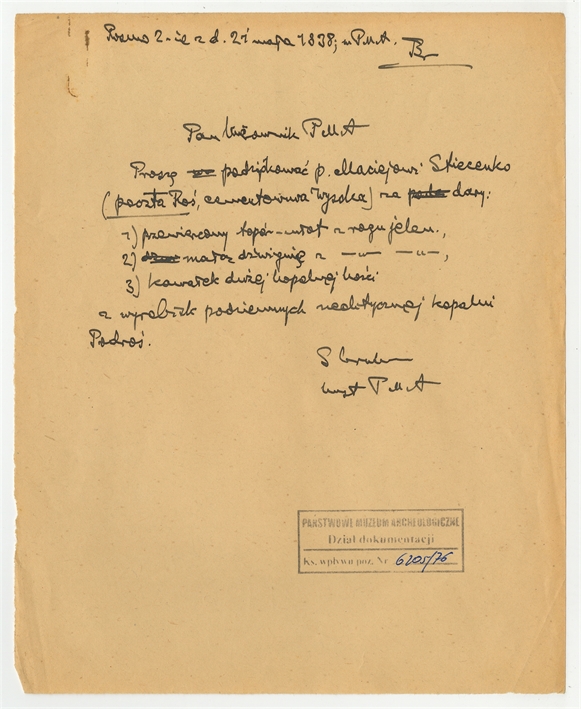 Pismo 2-ie z d. 21 maja 1938, u P.M.A.
Pan P M A
Proszę podziękować p. Maciejowi Stecenko
(poczta Roś, cementownia Wysoka) za dary:
1) przewiercony topór-młot z rogu jelen.,
2) mała dźwignię z —„— —„—,
3) kawałek dużej kopalnej kości
z wyrobisk podziemnych neolitycznej kopalni
Podroś.
P M A
PAŃSTWOWE MUZEUM ARCHEOLOGICZNE
Dział dokumentacji
Ks. wpływu poz. Nr 6205/76